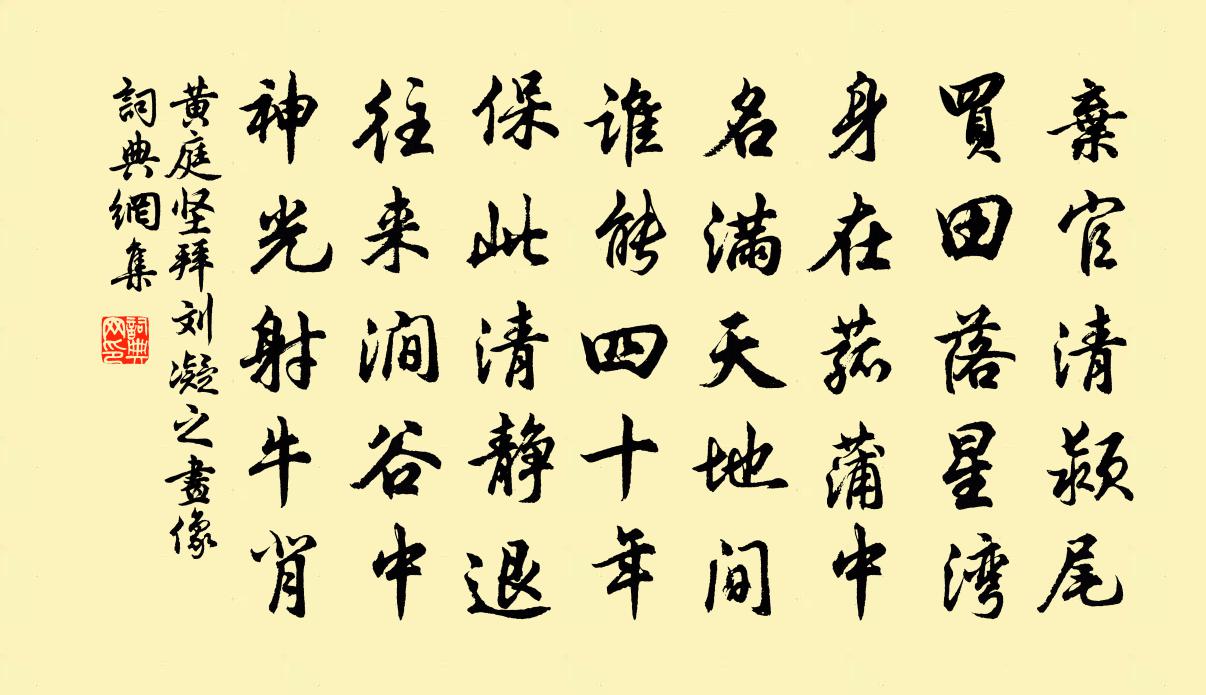 棄官清潁尾
買田落星湾
身在菰蒲中
名满天地间
誰能四十年
保此清静退
往来澗谷中
神光射牛背
黄庭坚拜刘凝之畫像
詞典網集
詞典网印